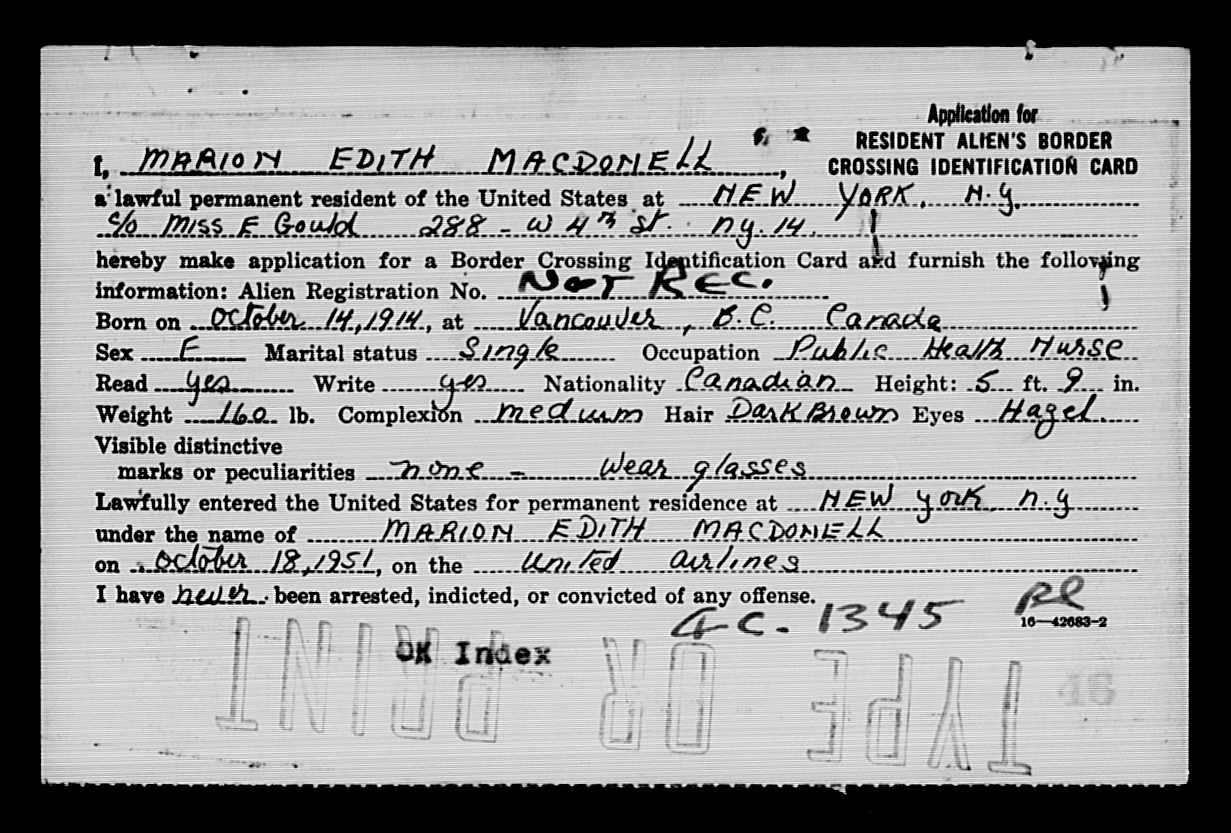 Application for
RESIDENT ALIEN'S BORDER
CROSSING IDENTIFICATION CARD
I, MARION EDITH MACDONELL,
a lawful permanent resident of the United States at NEW YORK. N.Y.
c/o Miss E Gould 288 - W 4th St. Ny. 14.
hereby make application for a Border Crossing Identification Card and furnish the following
information: Alien Registration No. NOT REC.
Born on October 14, 1914, at Vancouver, B.C. Canada
Sex F Marital status Single Occupation Public Health Nurse
Read yes Write yes Nationality Canadian Height: 5 ft. 9 in.
Weight 160 lb. Complexion medium Hair Dark Brown Eyes Hazel.
Visible distinctive
marks or peculiarities none - Wear glasses
Lawfully entered the United States for permanent residence at NEW York N.Y
under the name of MARION EDITH MACDONELL
on October 18, 1951, on the United Airlines
I have never been arrested, indicted, or convicted of any offense.
1345
16—42683-2
OK Index
TYPE OR PRINT
46